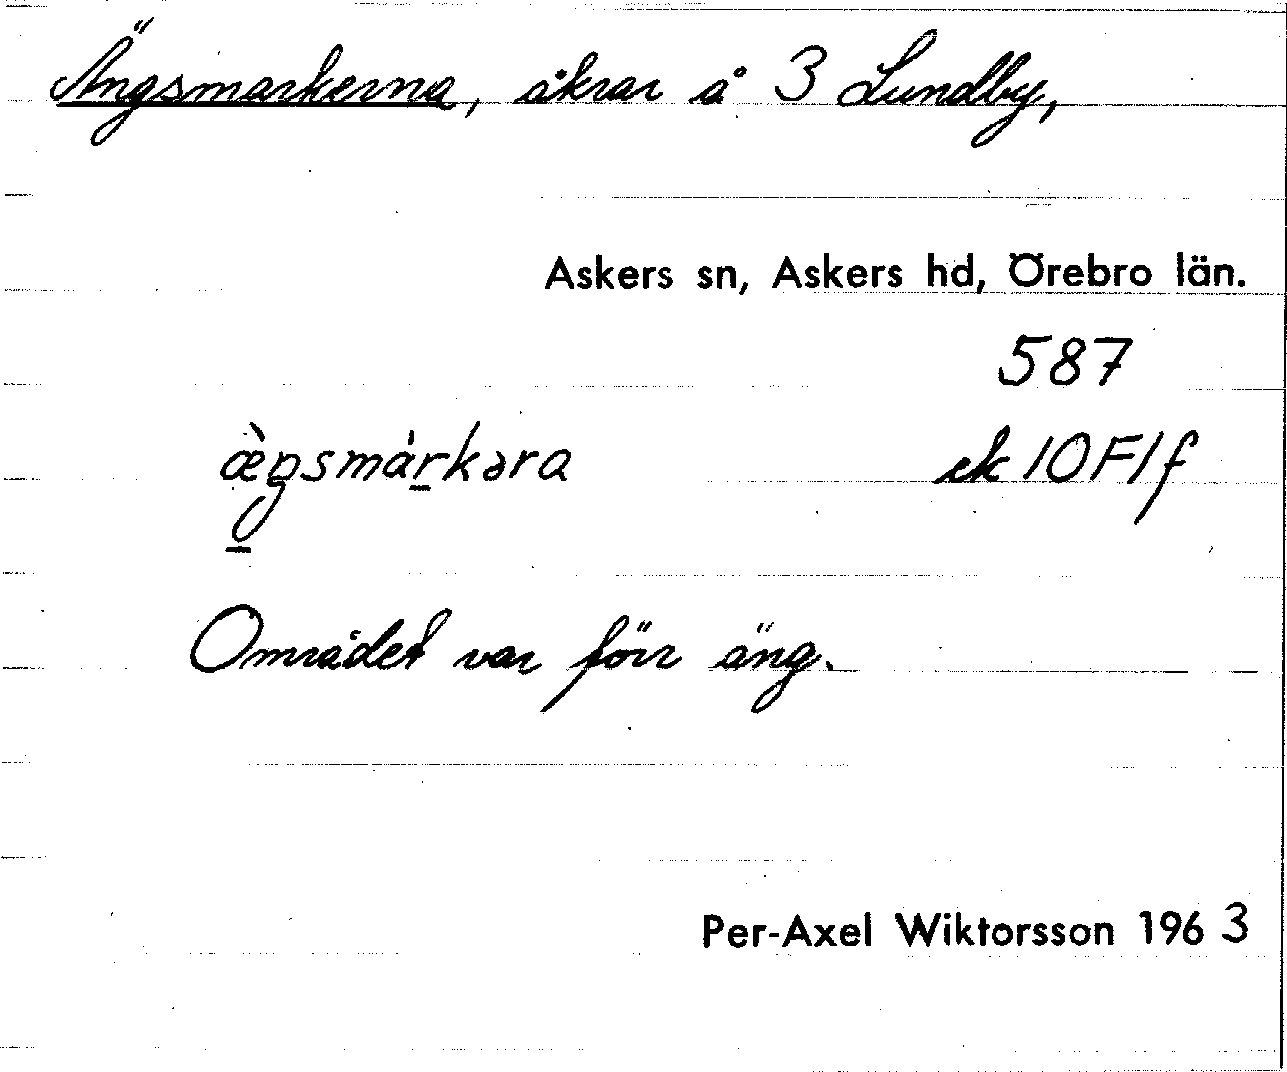 Ängsmarkerna, åkrar å 3 Lundby,
Askers sn, Askers hd, Örebro län.
587
æ̀ŋsmàrkəra ek 10F1f
Området var förr äng.
Per-Axel Wiktorsson 1963